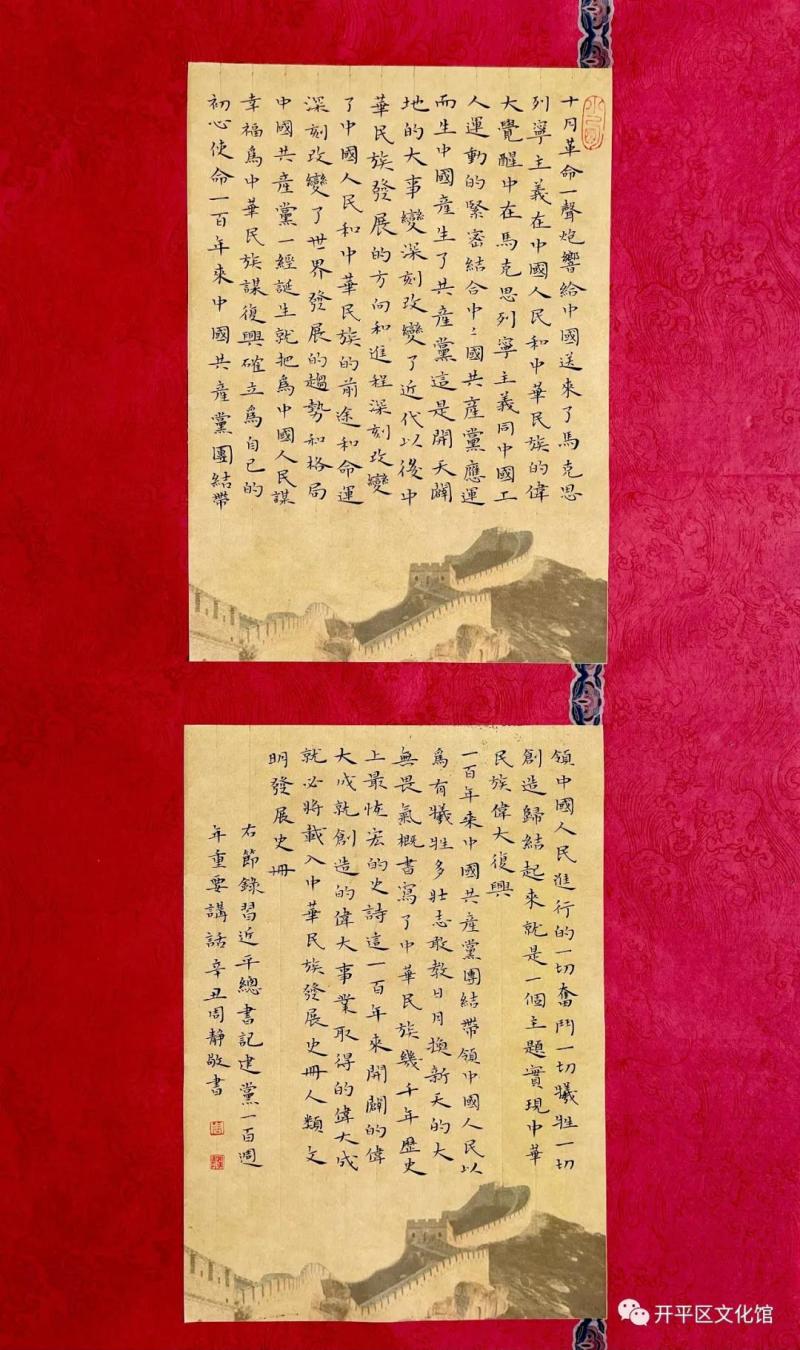 十月革命一聲炮響給中國送來了馬克思
列寧主義在中國人民和中華民族的偉
大覺醒中在馬克思列寧主義同中國工
人運動的緊密結合中〻國共產黨應運
而生中國產生了共產黨這是開天闢
地的大事變深刻改變了近代以後中
華民族發展的方向和進程深刻改變
了中國人民和中華民族的前途和命運
深刻改變了世界發展的趨勢和格局
中國共產黨一經誕生就把爲中國人民謀
幸福爲中華民族謀復興確立爲自己的
初心使命一百年來中國共產黨團結帶
領中國人民進行的一切奮鬥一切犧牲一切
創造歸結起來就是一個主題實現中華
民族偉大復興
一百年來中國共產黨團結帶領中國人民以
爲有犧牲多壯志敢教日月換新天的大
無畏氣概書寫了中華民族幾千年歷史
上最恢宏的史詩這一百年來開闢的偉
大成就創造的偉大事業取得的偉大成
就必將載入中華民族發展史冊人類文
明發展史冊
右節錄習近平總書記建黨一百週
年重要講話辛丑周靜敬書
开平区文化馆